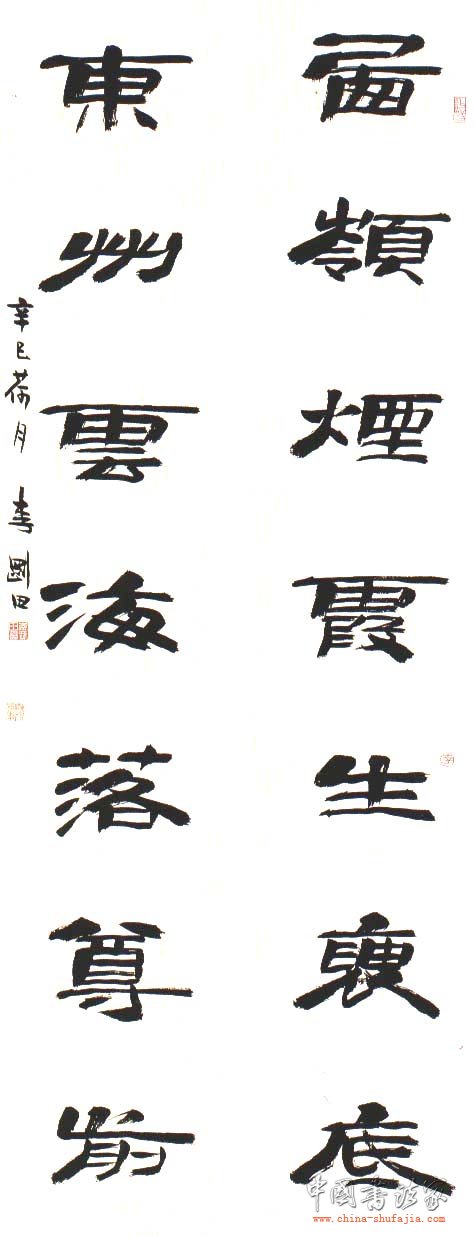 西嶺煙霞生褏底
東州雲海落尊前
辛巳荷月 李國田
中国书法家
www.china-shufajia.com